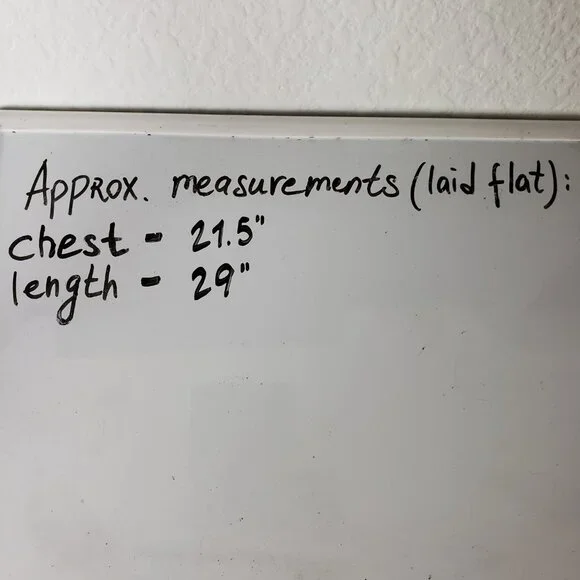 Approx. measurements (laid flat):
chest - 21.5"
length - 29"